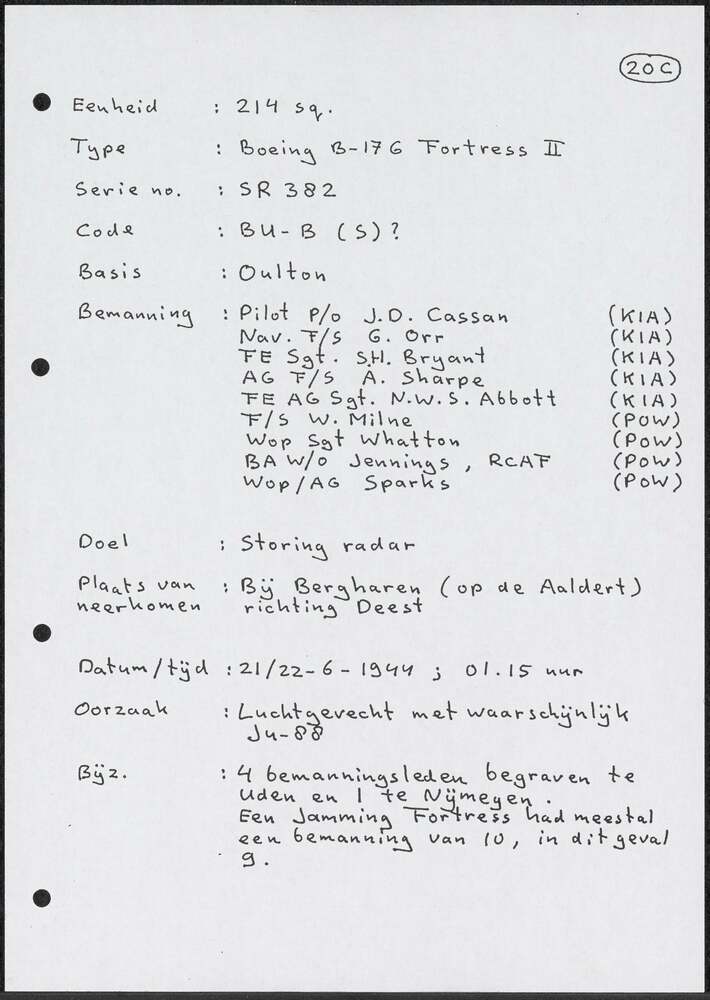 20C
Eenheid : 214 sq.
Type : Boeing B-17 G Fortress II
Serie no. : SR 382
Code : BU-B (S)?
Basis : Oulton
Bemanning : Pilot P/o J.D. Cassan (KIA)
Nav. F/S G. Orr (KIA)
FE Sgt. S.H. Bryant (KIA)
AG F/S A. Sharpe (KIA)
FE AG Sgt. N.W.S. Abbott (KIA)
F/S W. Milne (POW)
Wop Sgt Whatton (POW)
BA W/o Jennings, RCAF (POW)
Wop/AG Sparks (POW)
Doel : Storing radar
Plaats van : Bij Bergharen (op de Aaldert)
neerkomen richting Deest
Datum/tijd : 21/22-6-1944 ; 01.15 uur
Oorzaak : Luchtgevecht met waarschijnlijk
Ju-88
Bijz. : 4 bemanningsleden begraven te
Uden en 1 te Nijmegen.
Een Jamming Fortress had meestal
een bemanning van 10, in dit geval
9.